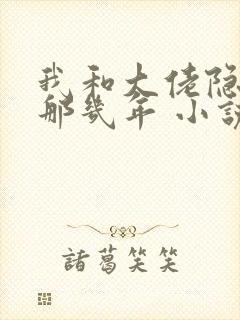 我和大佬隐
那几年 小説
諸葛笑笑